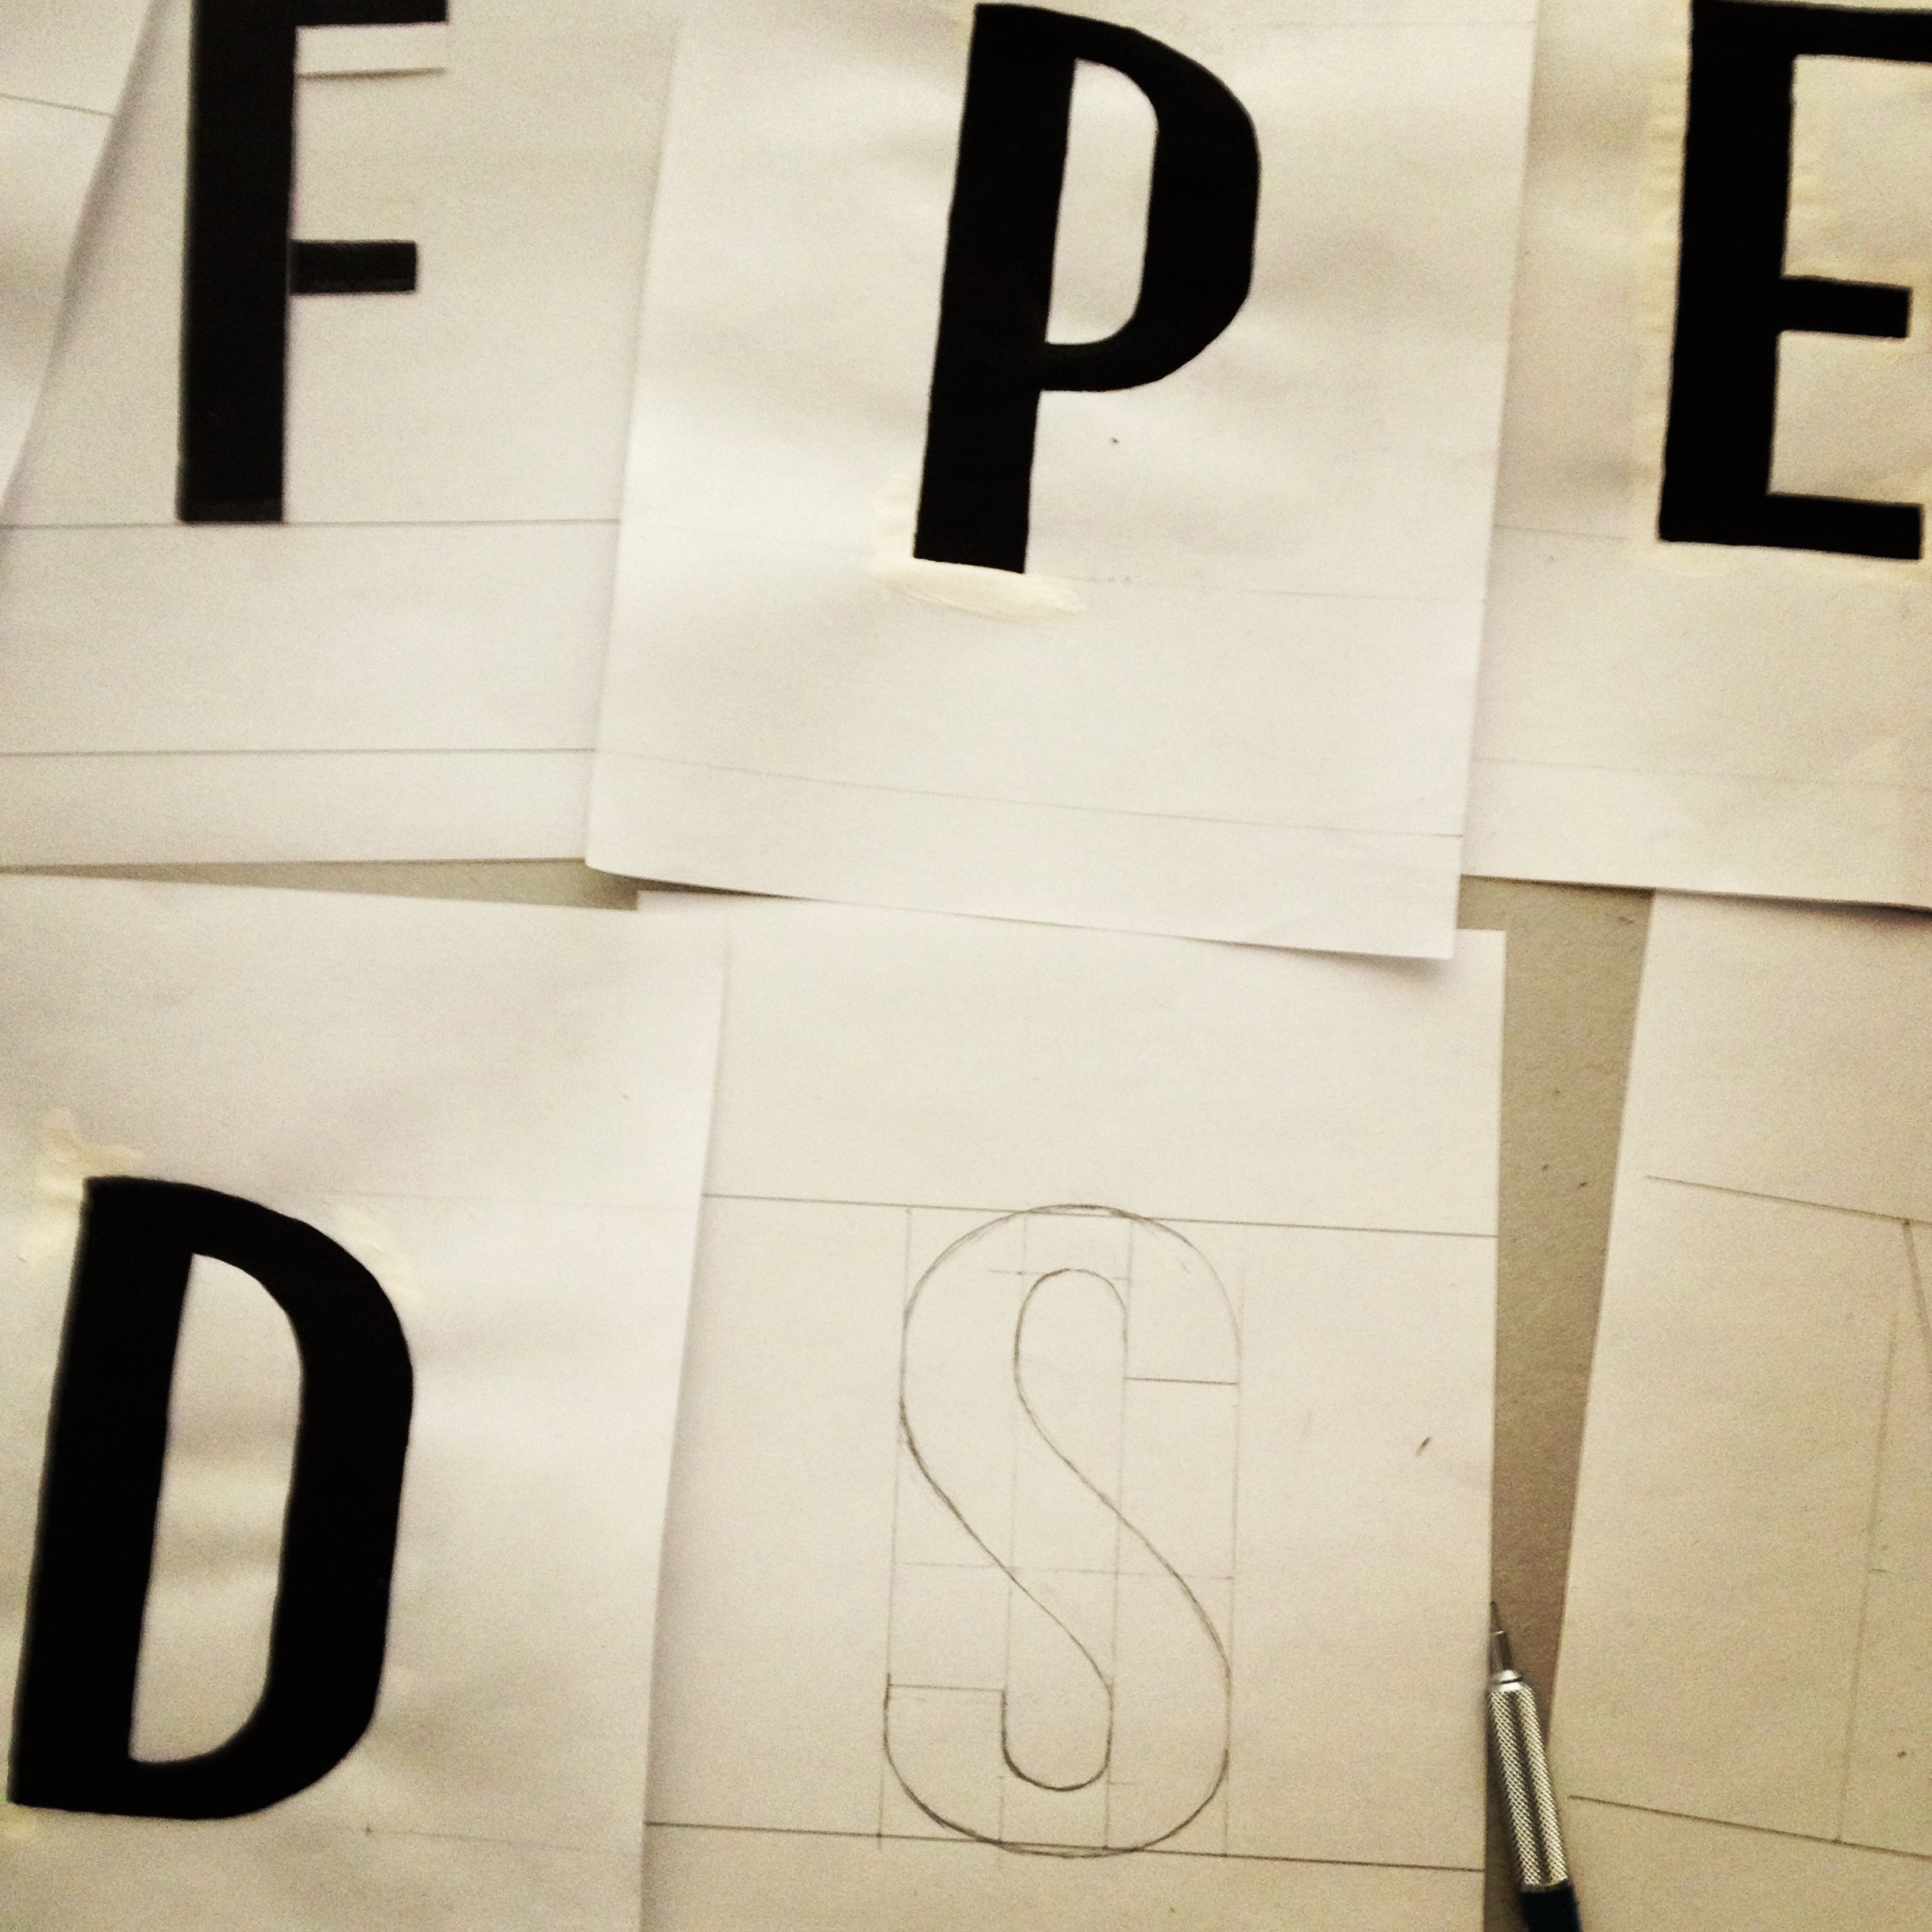 F P E
D S